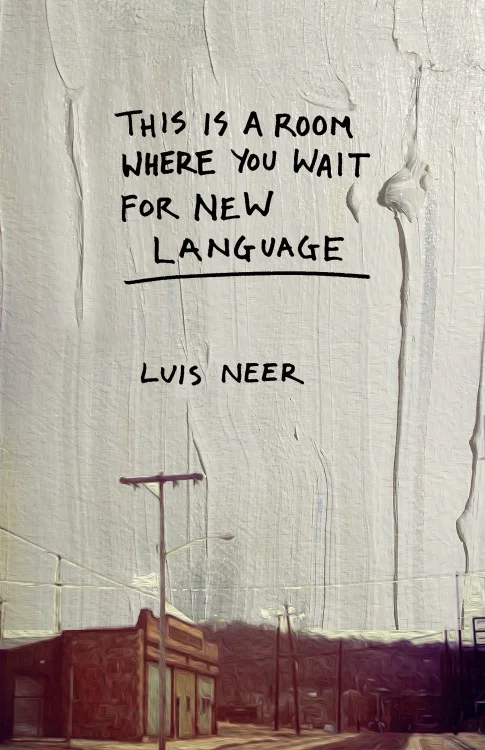 THIS IS A ROOM
WHERE YOU WAIT
FOR NEW
LANGUAGE
LUIS NEER